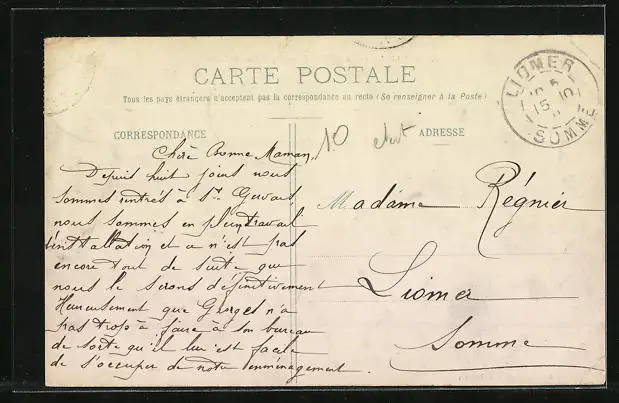 CARTE POSTALE
Tous les pays étrangers n'acceptent pas la correspondance au recto (Se renseigner à la Poste)
CORRESPONDANCE
ADRESSE
LIOMER
SOMME
10
Chère Bonne Maman,
Depuis huit jours nous
sommes rentrés à St. Gervais
nous sommes en plein travail
d'installation et ce n'est pas
encore tout de suite que
nous le serons définitivement
Heureusement que Georges n'a
pas trop à faire à son bureau
de sorte qu'il lui est facile
de s'occuper de notre emménagement.
Madame Régnier
Liomer
Somme